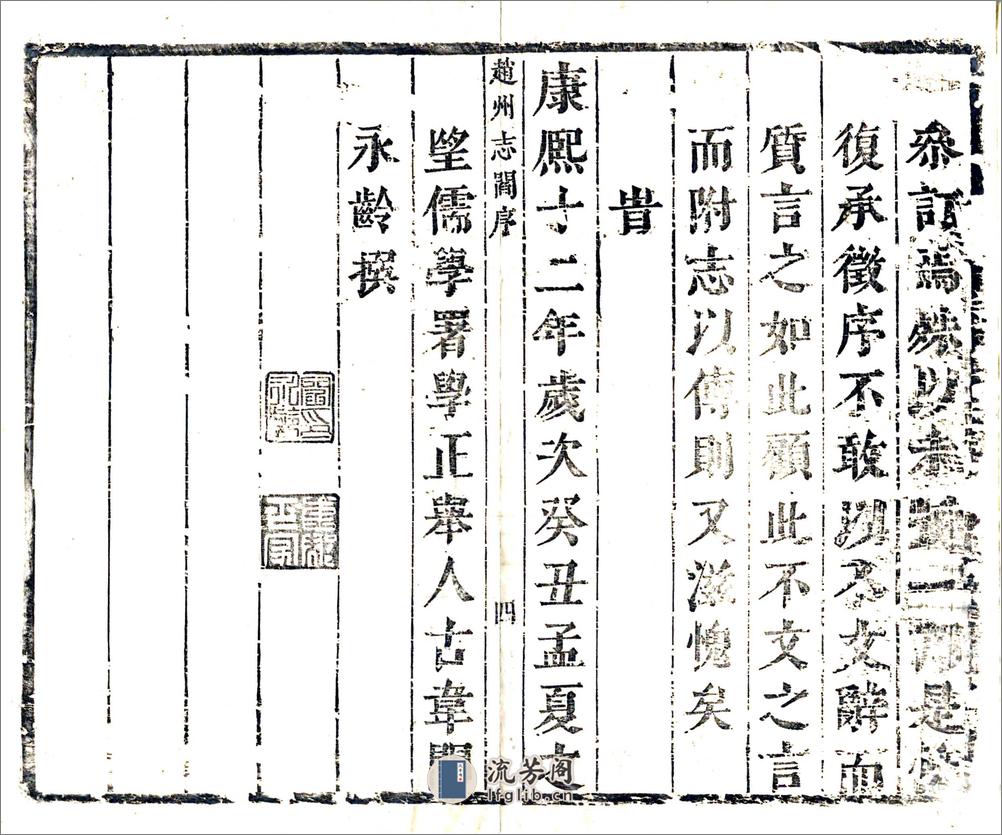 叅訂焉殊以未一是
復承徵序不敢以不文辭而
質言之如此顧此不文之言
而附志以傳則又滋愧矣
旹
康熙十二年歲次癸丑孟夏之
趙州志閻序 四
朢儒學署學正舉人古韋閻
永齡撰
流芳阁
lfglib.cn